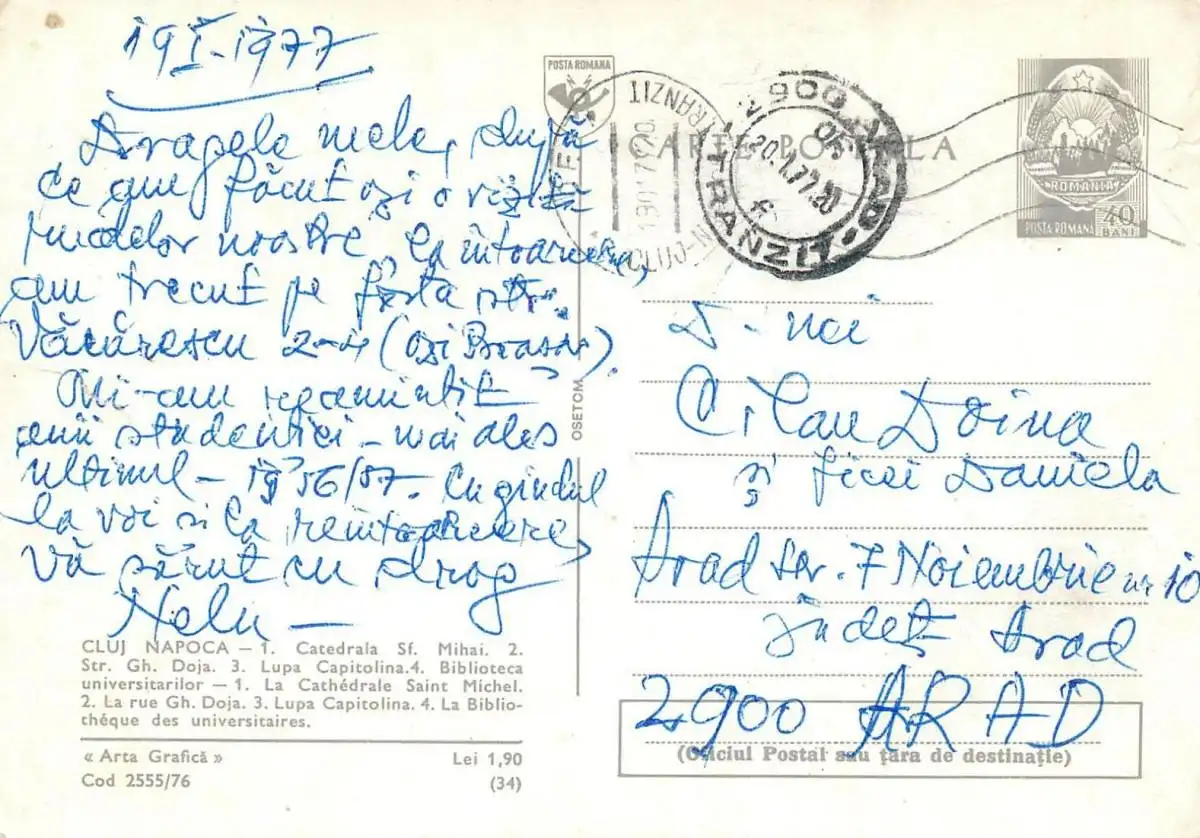 19 I 1977
Dragele mele, după
ce am făcut azi o vizită
rudelor noastre, la întoarcere,
am trecut pe fosta str.
Văcărescu 2-4 (azi Brașov).
Mi-am reamintit
anii studenției - mai ales
ultimul - 1956/57. Cu gîndul
la voi și la reîntoarcere,
vă sărut cu drag
Nelu -
CLUJ NAPOCA — 1. Catedrala Sf. Mihai. 2.
Str. Gh. Doja. 3. Lupa Capitolina. 4. Biblioteca
universitarilor — 1. La Cathédrale Saint Michel.
2. La rue Gh. Doja. 3. Lupa Capitolina. 4. La Biblio-
théque des universitaires.
« Arta Grafică » Lei 1,90
Cod 2555/76 (34)
OSETOM
POSTA ROMANA
CARTE POȘTALA
TRANZIT
CLUJ-N
2900 ARAD
20.1.77.20
TRANZIT
ROMANIA
40
POSTA ROMANA BANI
D-nei
Doina
și fiicei Daniela
Arad str. 7 Noiembrie nr 10
județ Arad
2900 ARAD
(Oficiul Postal sau țara de destinație)